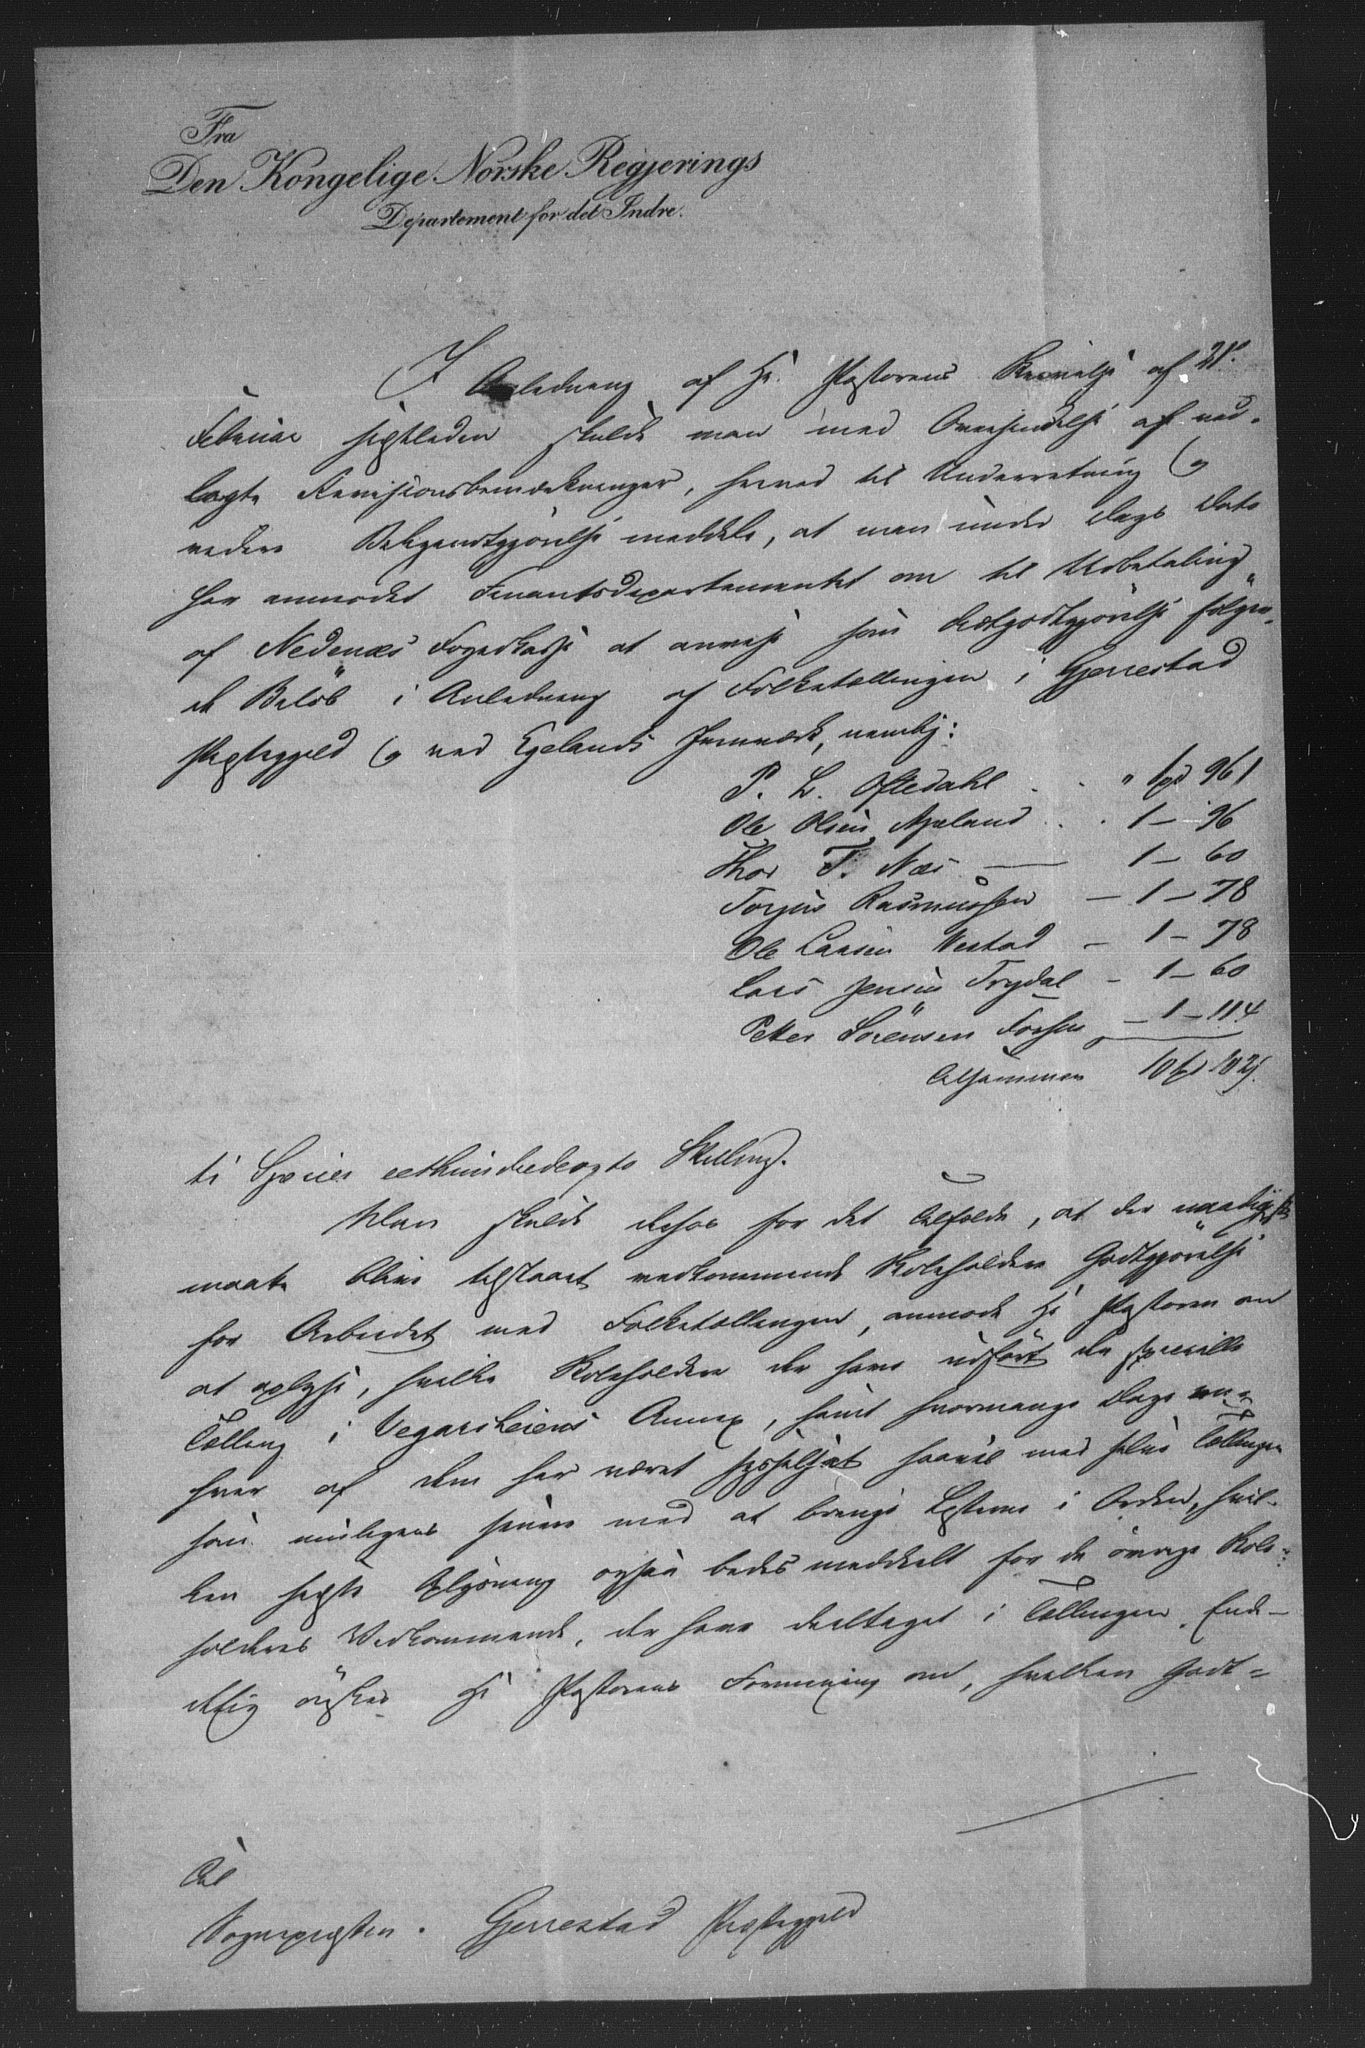 Fra
Den Kongelige Norske Regjerings
Departement for det Indre.
I Anledning af Hr. Pastorens Skrivelse af 21.
Februar sistleden skulde man med Oversendelse af ved-
lagte Revisionsbemærkninger, herved til Underretning og
videre Bekjendtgjörelse meddele, at man under Dags Dato
har anmodet Finantsdepartementet om til Udbetaling
af Nedenæs Fogedkasse at anvise som Godtgjörelse følgen-
de Belöb i Anledning af Folketællingen i Gjerrestad
Præstegjeld og ved Egelands Jernværk, nemlig:
P. L. Oftedahl . . " Spd 96 s
Ole Olsen Apeland . . 1 — 96
Thor T. Næs — 1 — 60
Torjus Rasmussen — 1 — 78
Ole Larsen Vestad — 1 — 78
Lars Jensen Trydal — 1 — 60
Petter Sörensen — 1 — 114
Alsammen 10 spd 102 s.
ti Species eethundredeogto Skilling.
Man skulde derhos for det Tilfælde, at der
maatte blive tilstaaet vedkommende Rodeholdere Godtgjörelse
for Arbeidet med Folketællingen, anmode Hr Pastoren om
at oplyse, hvilke Rodeholdere der have udfört den specielle
Tælling i Vegarsheiens Annex, samt hvormange Dage en-
hver af dem har været sysselsat saavel med selve Tællingen
som muligens senere med at bringe Listerne i Orden, hvil-
ken sidste Oplysning ogsaa bedes meddeelt for de övrige Rode-
holderes Vedkommende, der have deeltaget i Tællingen. Ende-
lig önskes Hr Pastorens Formening om, hvilken Godt-
Til
Sognepræsten . Gjerrestad Præstegjeld